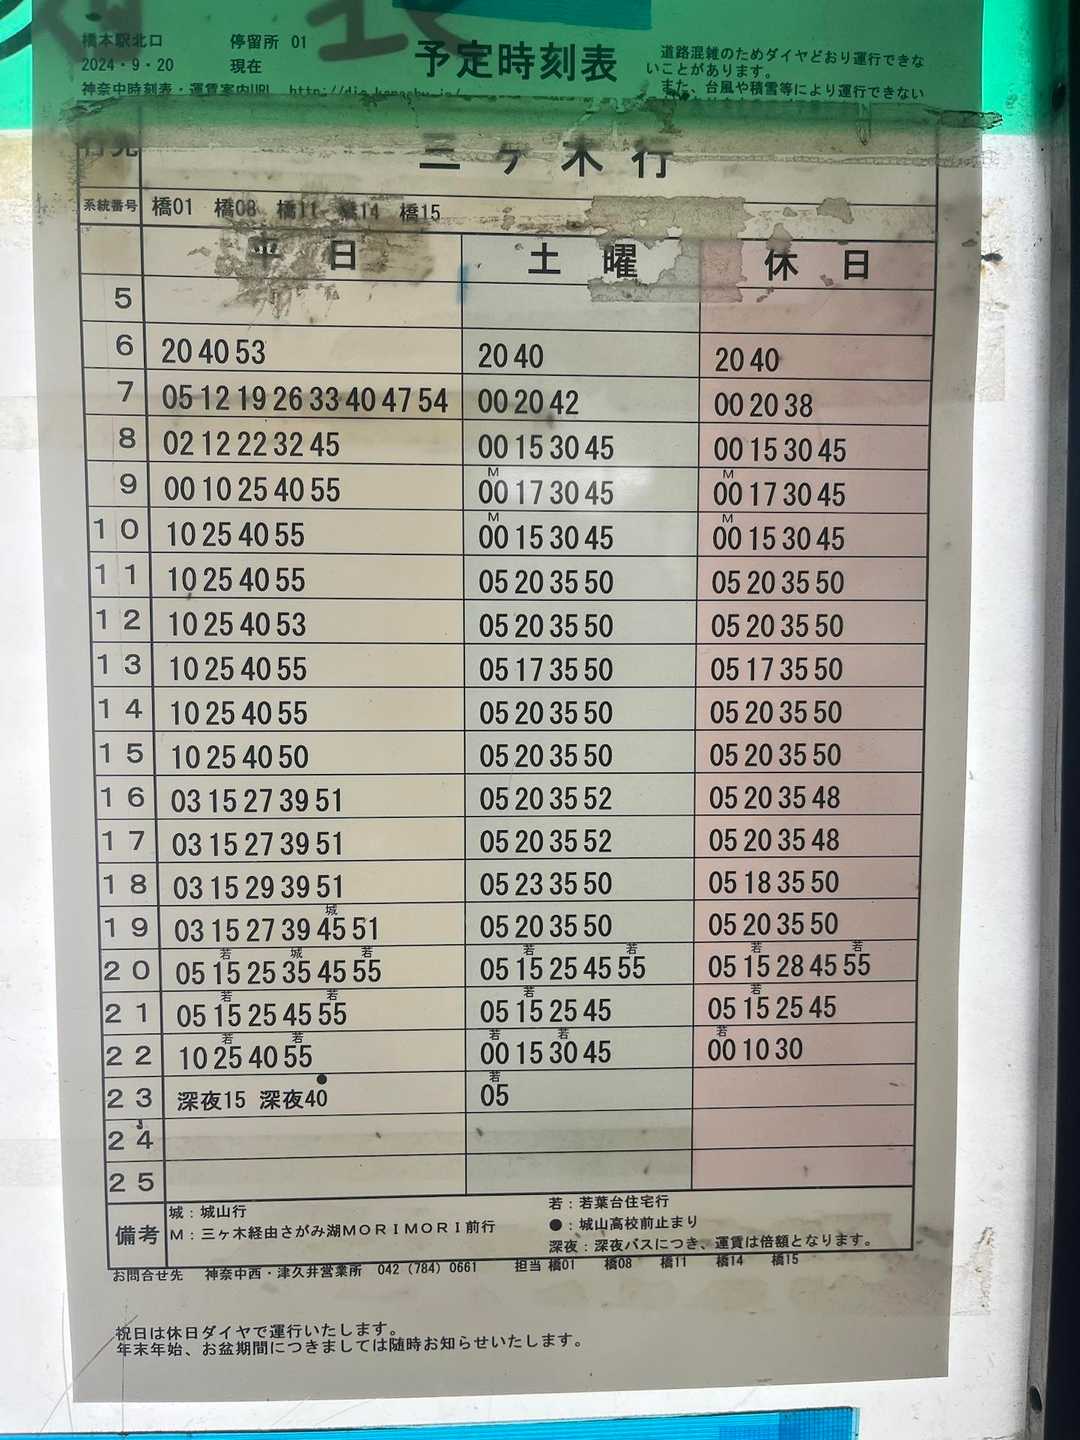 橋本駅北口 停留所 01
2024・9・20 現在
予定時刻表
道路混雑のためダイヤどおり運行できな
いことがあります。
また、台風や積雪等により運行できない
神奈中時刻表・運賃案内URL
行先 三ヶ木行
系統番号 橋01 橋08 橋11 橋14 橋15
平日 土曜 休日
5
6 20 40 53 20 40 20 40
7 05 12 19 26 33 40 47 54 00 20 42 00 20 38
8 02 12 22 32 45 00 15 30 45 00 15 30 45
M M
9 00 10 25 40 55 00 17 30 45 00 17 30 45
M M
10 10 25 40 55 00 15 30 45 00 15 30 45
11 10 25 40 55 05 20 35 50 05 20 35 50
12 10 25 40 53 05 20 35 50 05 20 35 50
13 10 25 40 55 05 17 35 50 05 17 35 50
14 10 25 40 55 05 20 35 50 05 20 35 50
15 10 25 40 50 05 20 35 50 05 20 35 50
16 03 15 27 39 51 05 20 35 52 05 20 35 48
17 03 15 27 39 51 05 20 35 52 05 20 35 48
18 03 15 29 39 51 05 23 35 50 05 18 35 50
城
19 03 15 27 39 45 51 05 20 35 50 05 20 35 50
若 城 若 若 若 若 若
20 05 15 25 35 45 55 05 15 25 45 55 05 15 28 45 55
若 若 若 若
21 05 15 25 45 55 05 15 25 45 05 15 25 45
若 若 若 若 若
22 10 25 40 55 00 15 30 45 00 10 30
● 若
23 深夜15 深夜40 05
24
25
備考
城：城山行
M：三ヶ木経由さがみ湖MORIMORI前行
若：若葉台住宅行
●：城山高校前止まり
深夜：深夜バスにつき、運賃は倍額となります。
お問合せ先 神奈中西・津久井営業所 042（784）0661 担当 橋01 橋08 橋11 橋14 橋15
祝日は休日ダイヤで運行いたします。
年末年始、お盆期間につきましては随時お知らせいたします。